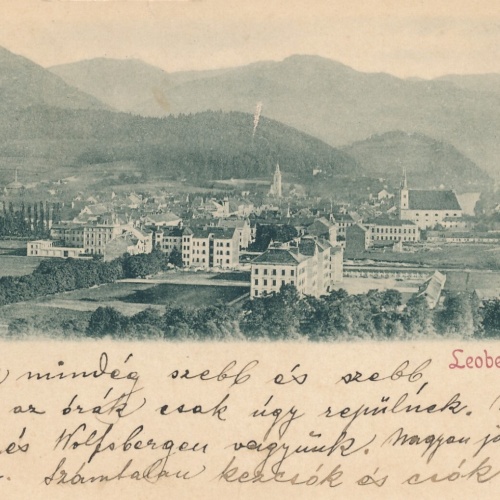 Leobe
mindég szebb és szebb
az órák csak úgy repülnek.
és Wolfsbergen vagyunk. Nagyon já
Számtalan kezcsók és csók